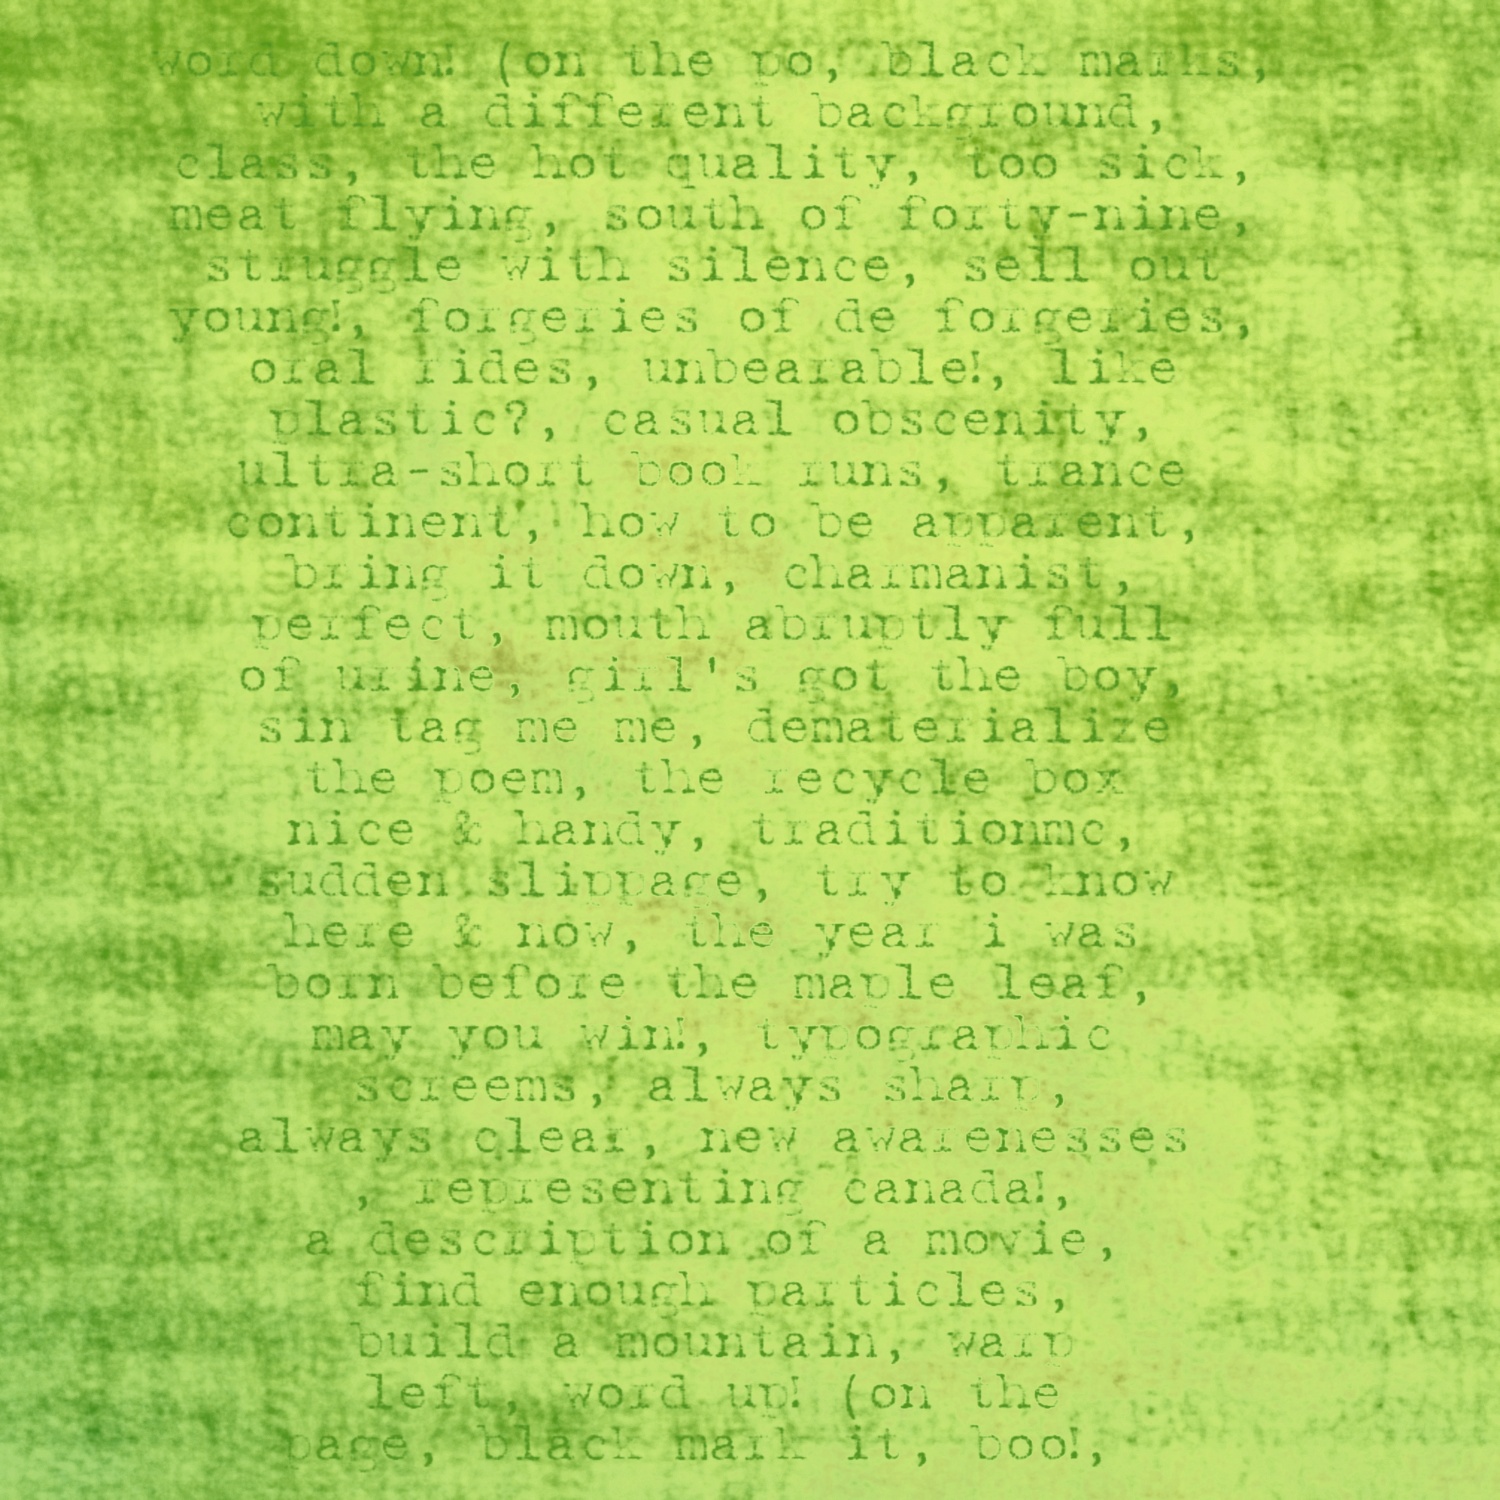 word down! (on the po, black marks,
with a different background,
class, the hot quality, too sick,
meat flying, south of forty-nine,
struggle with silence, sell out
young!, forgeries of de forgeries,
oral rides, unbearable!, like
plastic?, casual obscenity,
ultra-short book runs, trance
continent', how to be apparent,
bring it down, charmanist,
perfect, mouth abruptly full
of urine, girl's got the boy,
sin tag me me, dematerialize
the poem, the recycle box
nice & handy, traditionmc,
sudden slippage, try to know
here & now, the year i was
born before the maple leaf,
may you win!, typographic
screems, always sharp,
always clear, new awarenesses
, representing canada!,
a description of a movie,
find enough particles,
build a mountain, warp
left, word up! (on the
page, black mark it, boo!,